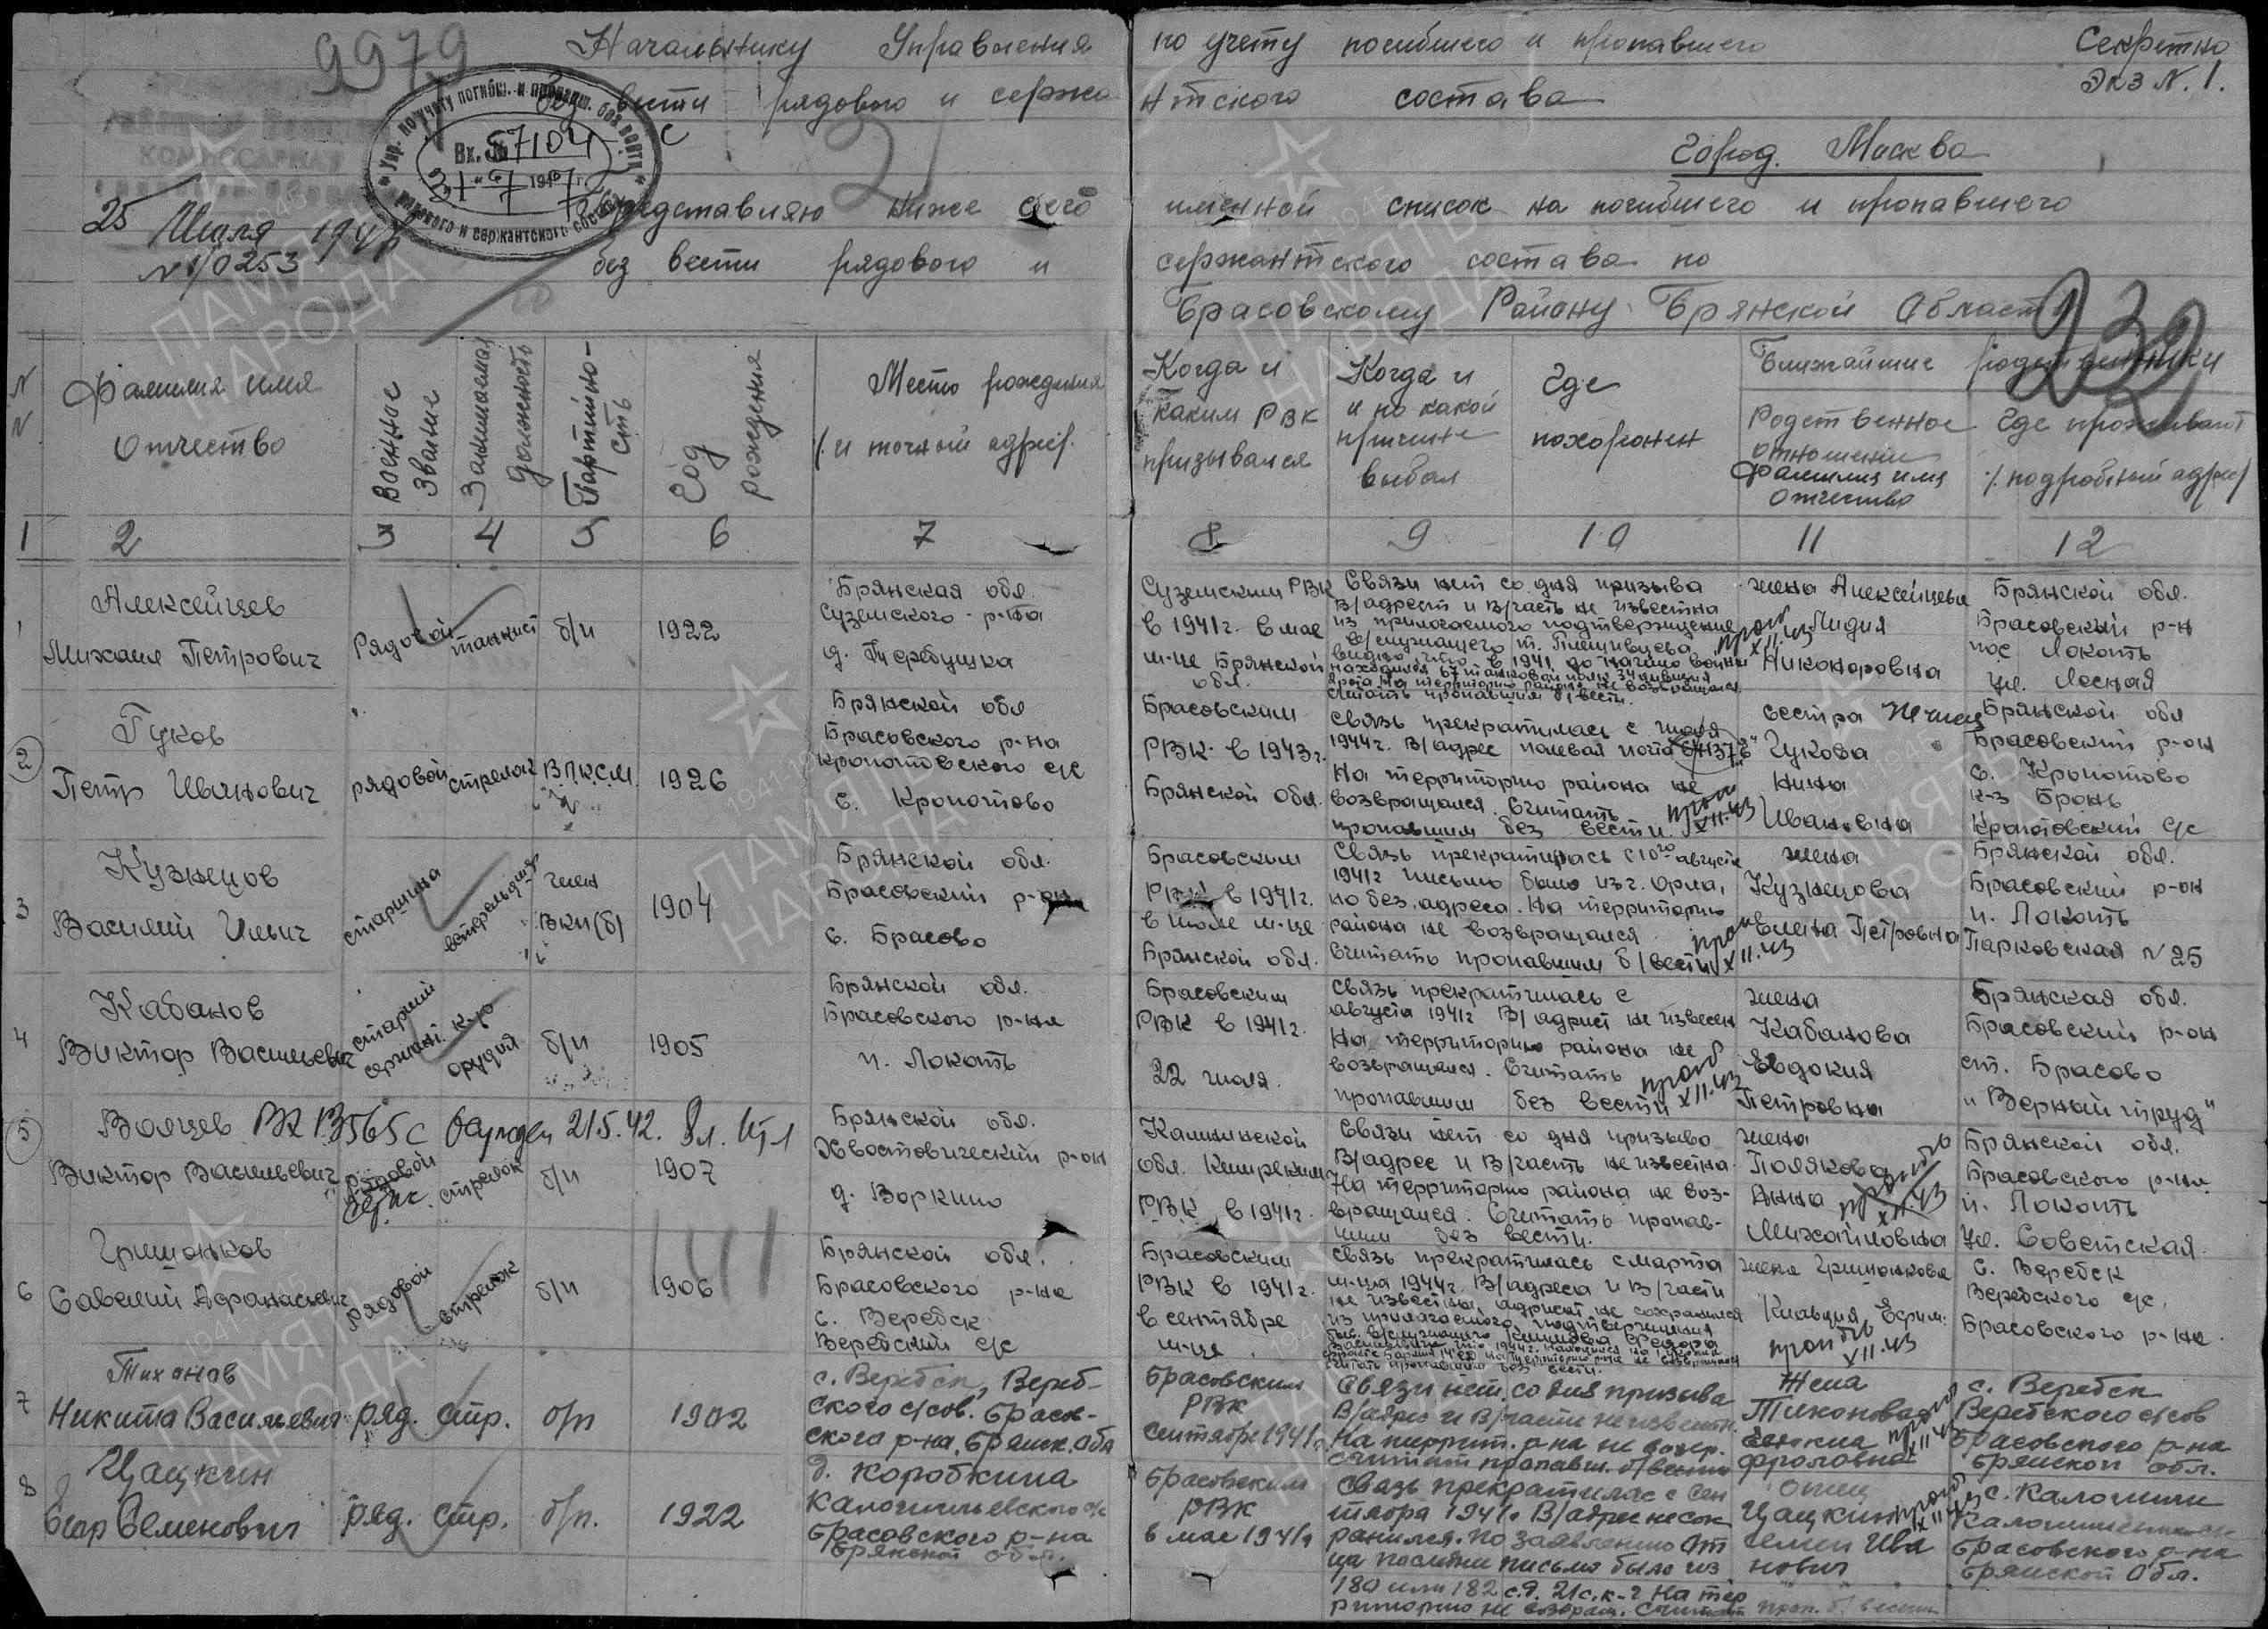 9979
Начальнику Управления по учету погибшего и пропавшего
Секретно
Экз N. 1.
вести рядового и сержантского состава
Упр. по учету погибш. и пропавш. без вести
рядового и сержантского состава
Вх. № 57104 с
город. Москва
25 Июля 1947
N 1/0253
Представляю ниже сего именной список на погибшего и пропавшего
без вести рядового и сержантского состава по
Брасовскому Району Брянской Области
232
NN
Фамилия имя
Отчество
Военное
звание
Занимаемая
должность
Партийно-
сть
Год
рождения
Место рождения
и точный адрес.
Когда и
каким РВК
призывался
Когда и
и по какой
причине
выбыл
Где
похоронен
Ближайшие родственники
Родственное
отношение
фамилия имя
отчество
Где проживают
/. подробный адрес/
1 2 3 4 5 6 7 8 9 10 11 12
1
Алексейцев
Михаил Петрович
Рядовой
танкист
б/п
1922
Брянская обл.
Суземского р-на
д. Теребушка
Суземским РВК
в 1941г. в мае
м-це Брянской
обл.
Связи нет со дня призыва
в/адрес и в/часть не известна
из прилагаемого подтверждения
в/служащего т.
видно что в 1941 до начало войны
считать пропавшим б/вести.
жена Алексейцева
Лидия
Никоноровна
проп
XII.43
Брянской обл.
Брасовский р-н
пос Локоть
ул. Лесная
2
Гуков
Петр Иванович
рядовой
стрелок
В.Л.К.С.М.
1926
Брянской обл
Брасовского р-на
Кропотовского с/с
с. Кропотово
Брасовским
РВК в 1943г.
Брянской обл.
Связь прекратилась с июля
1944г. В/адрес полевая почта
На территорию района не
возвращался. Считать
пропавшим без вести.
проп
XII.43
сестра
Гукова
Нина
Ивановна
Брянской обл
Брасовский р-он
с. Кропотово
к-з Бронь
Кропотовский с/с
3
Кузнецов
Василий Ильич
старшина
член
ВКП(б)
1904
Брянской обл.
Брасовский р-он
с. Брасово
Брасовским
РВК в 1941г.
в июле м-це
Брянской обл.
Связь прекратилась с 10го августа
1941г письмо было из г. Орла,
но без адреса. На территорию
района не возвращался
Считать пропавшим б/вести
проп
XII.43
жена
Кузнецова
Елена Петровна
Брянской обл.
Брасовский р-он
п. Локоть
Парковская N 25
4
Кабанов
Виктор Васильевич
старший
сержант.
к-р
орудия
б/п
1905
Брянской обл.
Брасовского р-на
п. Локоть
Брасовским
РВК в 1941г.
22 июля.
Связь прекратилась с
августа 1941г В/адрес не известен
На территорию района не
возвращался. Считать
пропавшим без вести
проп
XII.43
жена
Кабанова
Евдокия
Петровна
Брянская обл.
Брасовский р-он
ст. Брасово
"Верный труд"
5
Виктор Васильевич
рядовой
стрелок
б/п
1907
Брянской обл.
Хвостовический р-он
д. Воркино
Калининской
обл.
РВК в 1941г.
Связи нет со дня призыва
В/адрес и В/часть не известна.
На территорию района не воз-
вращался. Считать пропав-
шим без вести.
жена
Полякова
Анна
Михайловна
XII.43
Брянской обл.
Брасовского р-на
п. Локоть
ул. Советская.
6
Гришонков
Савелий Афанасьевич
рядовой
стрелок
б/п
1906
Брянской обл.
Брасовского р-на
с. Веребск
Веребский с/с
Брасовским
РВК в 1941г.
в сентябре
м-це.
Связь прекратилась с марта
м-ца 1944г. В/адреса и В/части
не известны, адресат не сохранился
из прилагаемого подтверждения
считать пропавшим без вести.
жена Гришонкова
Клавдия Ефим.
проп
XII.43
с. Веребск
Веребского с/с.
Брасовского р-на.
7
Тихонов
Никита Васильевич
ряд.
стр.
б/п
1902
с. Веребск, Вереб-
ского с/сов. Брасов-
ского р-на, Брянск. обл
Брасовским
РВК
сентябре 1941г
Связи нет со дня призыва
В/адрес и В/части не известн.
На террит. р-на не возвр.
Считат пропавш. б/вести
Жена
Тихоновая
Фроловна
с. Веребск
Веребского с/сов
Брасовского р-на
Брянской обл.
8
Цацкин
Егор Семенович
ряд.
стр.
б/п.
1922
д. Коробкина
Брасовского р-на
Брянской обл.
Брасовским
РВК
в мае 1941г
Связь прекратилас с сен
тября 1941г В/адрес не сох
ранился. По заявлению от
ца последни письмо было из
180 или 182 с.д. 21 с.к-г На тер
риторию не возвращ. Считат проп. б/вести
отец
Цацкин
Семен Ива
нович
Брасовского р-на
Брянской Обл.
ПАМЯТЬ
НАРОДА
1941-1945